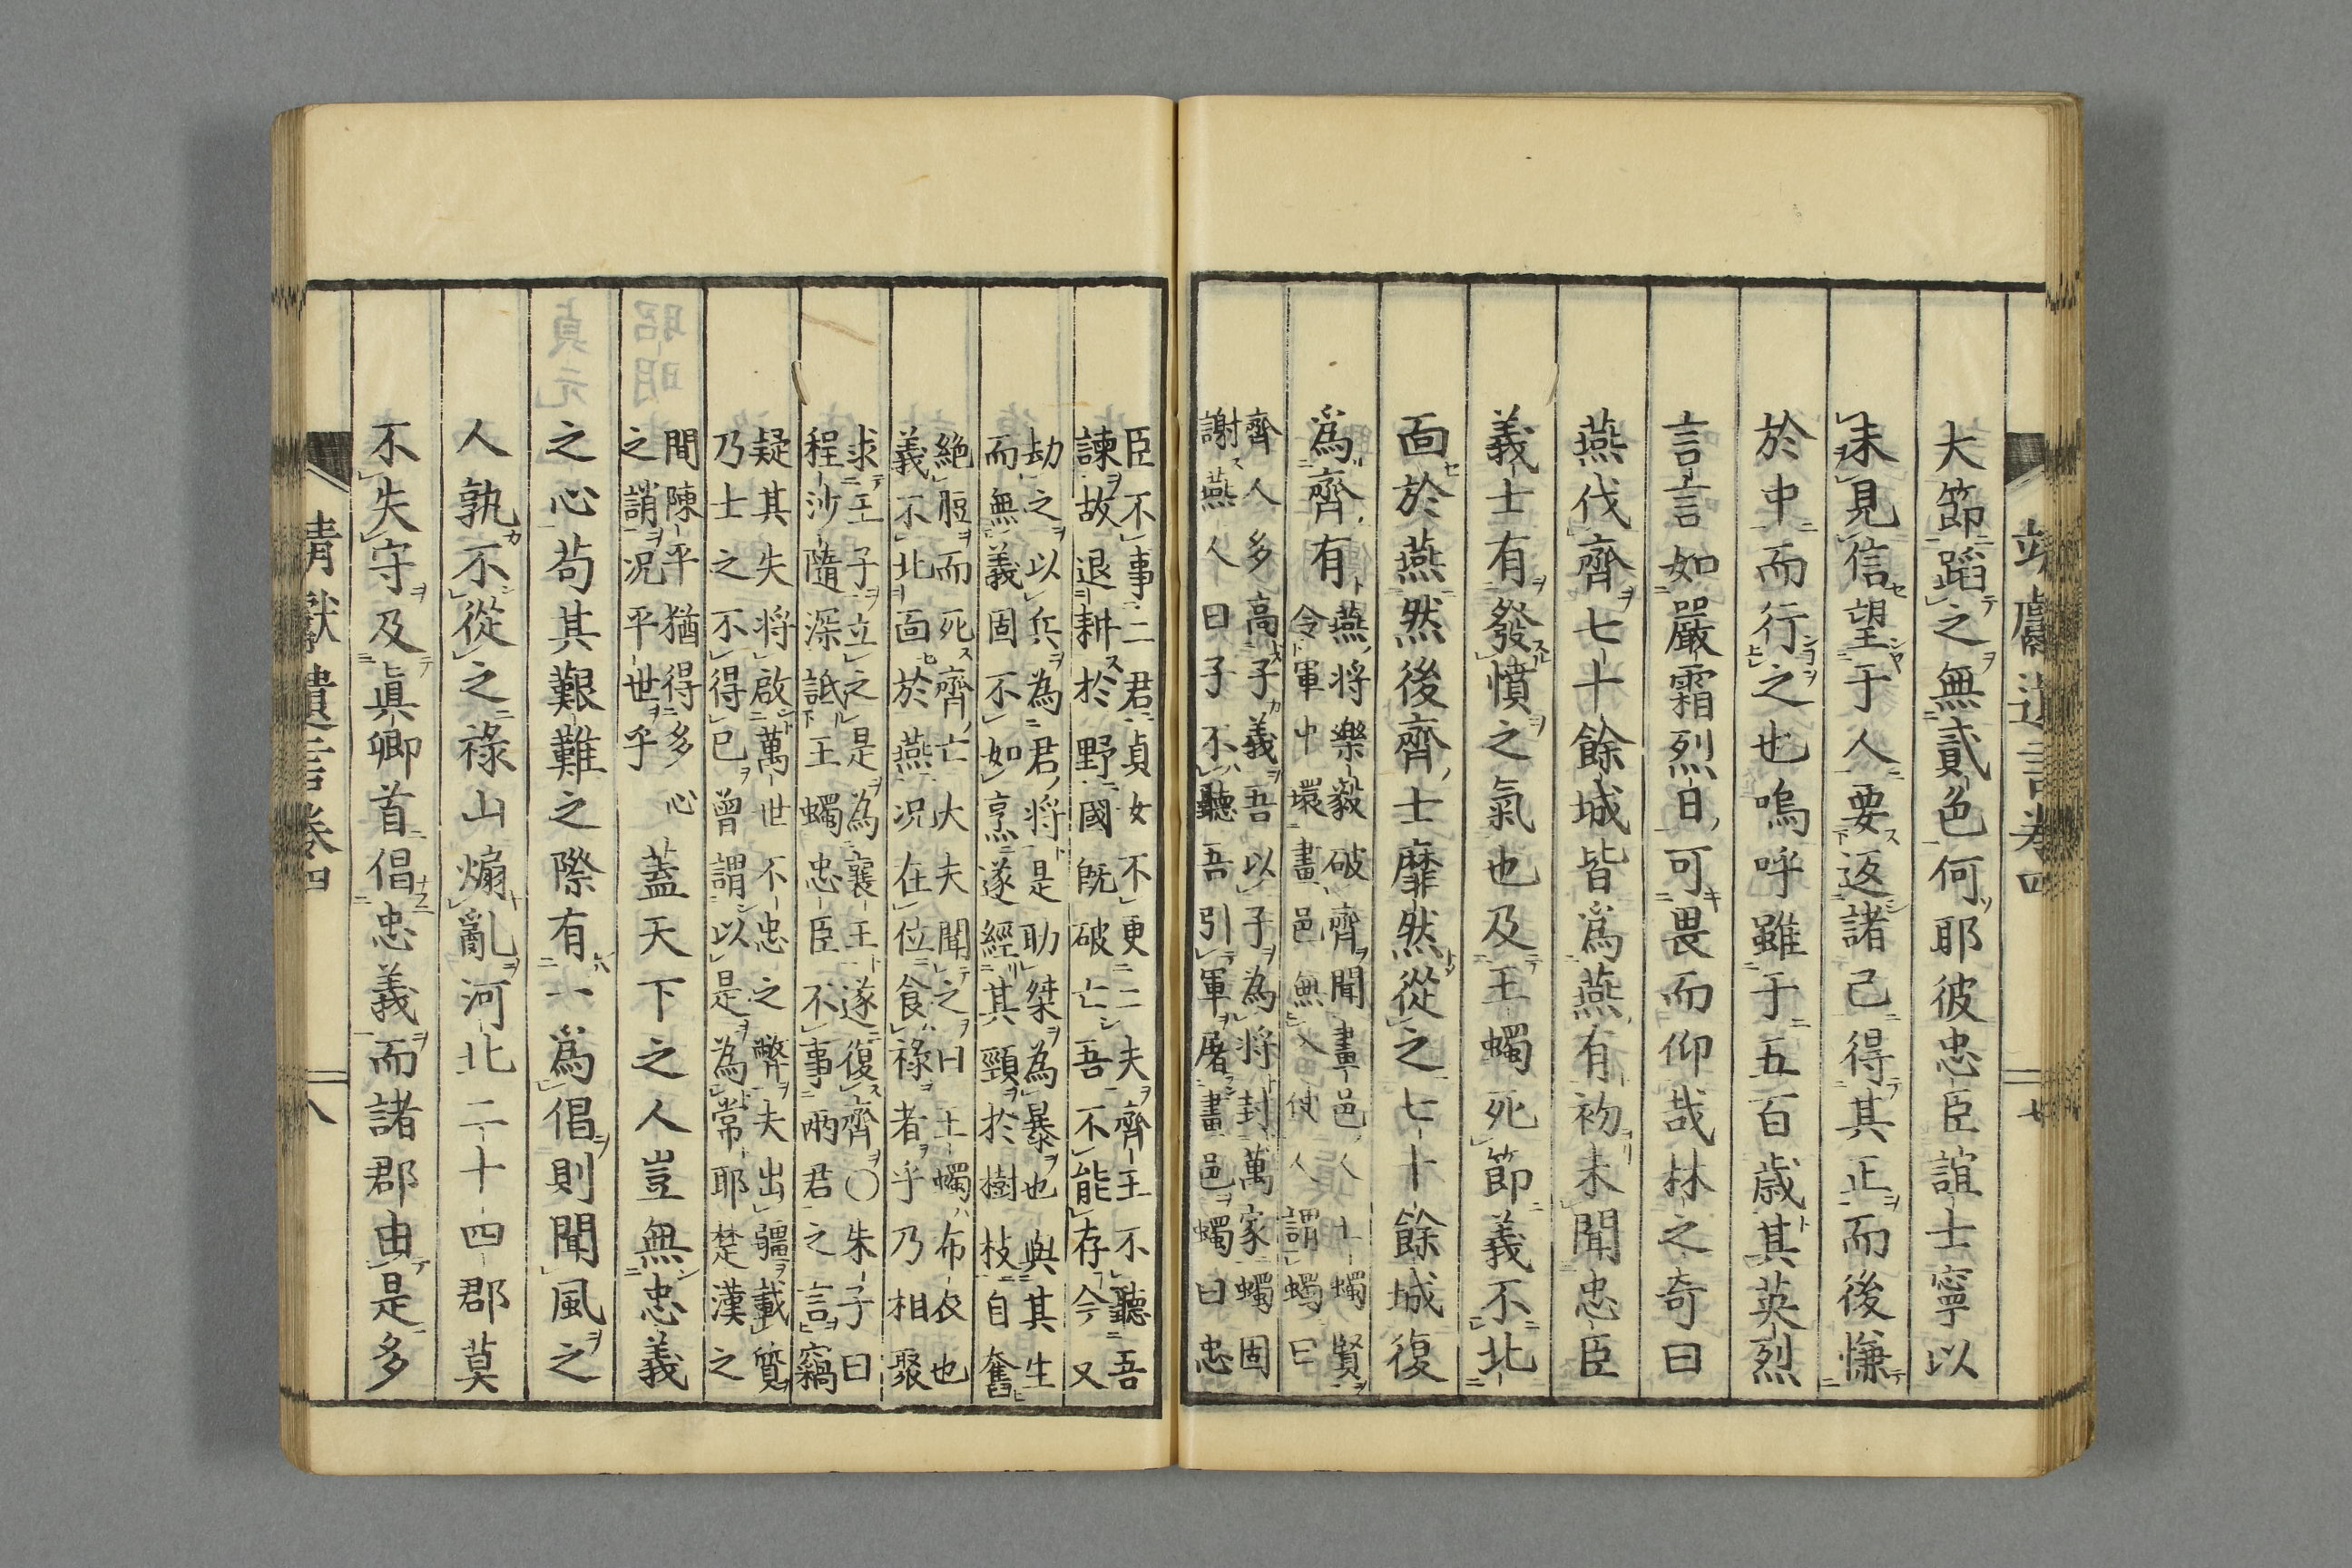 靖獻遺言卷四 七
大節蹈之無貳色何耶彼忠臣誼士寧以
未見信望于人要返諸己得其正而後慊
於中而行之也嗚呼雖于五百歳其英烈
言言如嚴霜烈日可畏而仰哉林之奇曰
燕伐齊七十餘城皆爲燕有初未聞忠臣
義士有發憤之氣也及王蠋死節義不北
面於燕然後齊士靡然從之七十餘城復
爲齊有
燕將樂毅破齊聞畫邑人王蠋賢
令軍中環畫邑無入使人謂蠋曰
齊人多高子義吾以子為將封萬家蠋固
謝燕人曰子不聽吾引軍屠畫邑蠋曰忠
臣不事二君貞女不更二夫齊王不聽吾
諫故退耕於野國既破亡吾不能存今又
劫之以兵為君將是助桀為暴也與其生
而無義固不如烹遂經其頸於樹枝自奮
絶脰而死齊亡大夫聞之曰王蠋布衣也
義不北面於燕况在位食祿者乎乃相聚
求王子立之是為襄王遂復齊○朱子曰
程沙隨深詆王蠋忠臣不事兩君之言竊
疑其失將啟萬世不忠之弊夫出疆載質
乃士之不得已曾謂以是為常耶楚漢之
間陳平猶得多心
之誚况平世乎
蓋天下之人豈無忠義
之心苟其艱難之際有一爲倡則聞風之
人孰不從之祿山煽亂河北二十四郡莫
不失守及眞卿首倡忠義而諸郡由是多
靖獻遺言卷四 八